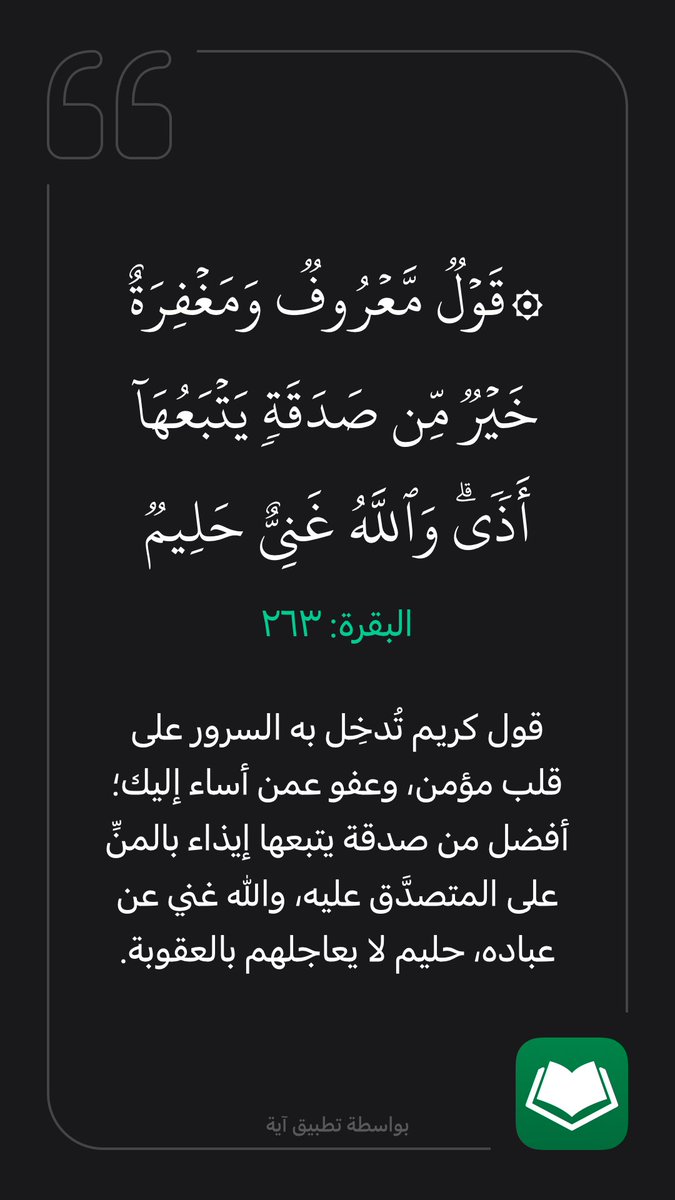 ۞ قَوۡلٞ مَّعۡرُوفٞ وَمَغۡفِرَةٌ
خَيۡرٞ مِّن صَدَقَةٖ يَتۡبَعُهَآ
أَذٗىۗ وَٱللَّهُ غَنِيٌّ حَلِيمٞ
البقرة: ٢٦٣
قول كريم تُدخِل به السرور على
قلب مؤمن، وعفو عمن أساء إليك؛
أفضل من صدقة يتبعها إيذاء بالمنِّ
على المتصدَّق عليه، والله غني عن
عباده، حليم لا يعاجلهم بالعقوبة.
بواسطة تطبيق آية